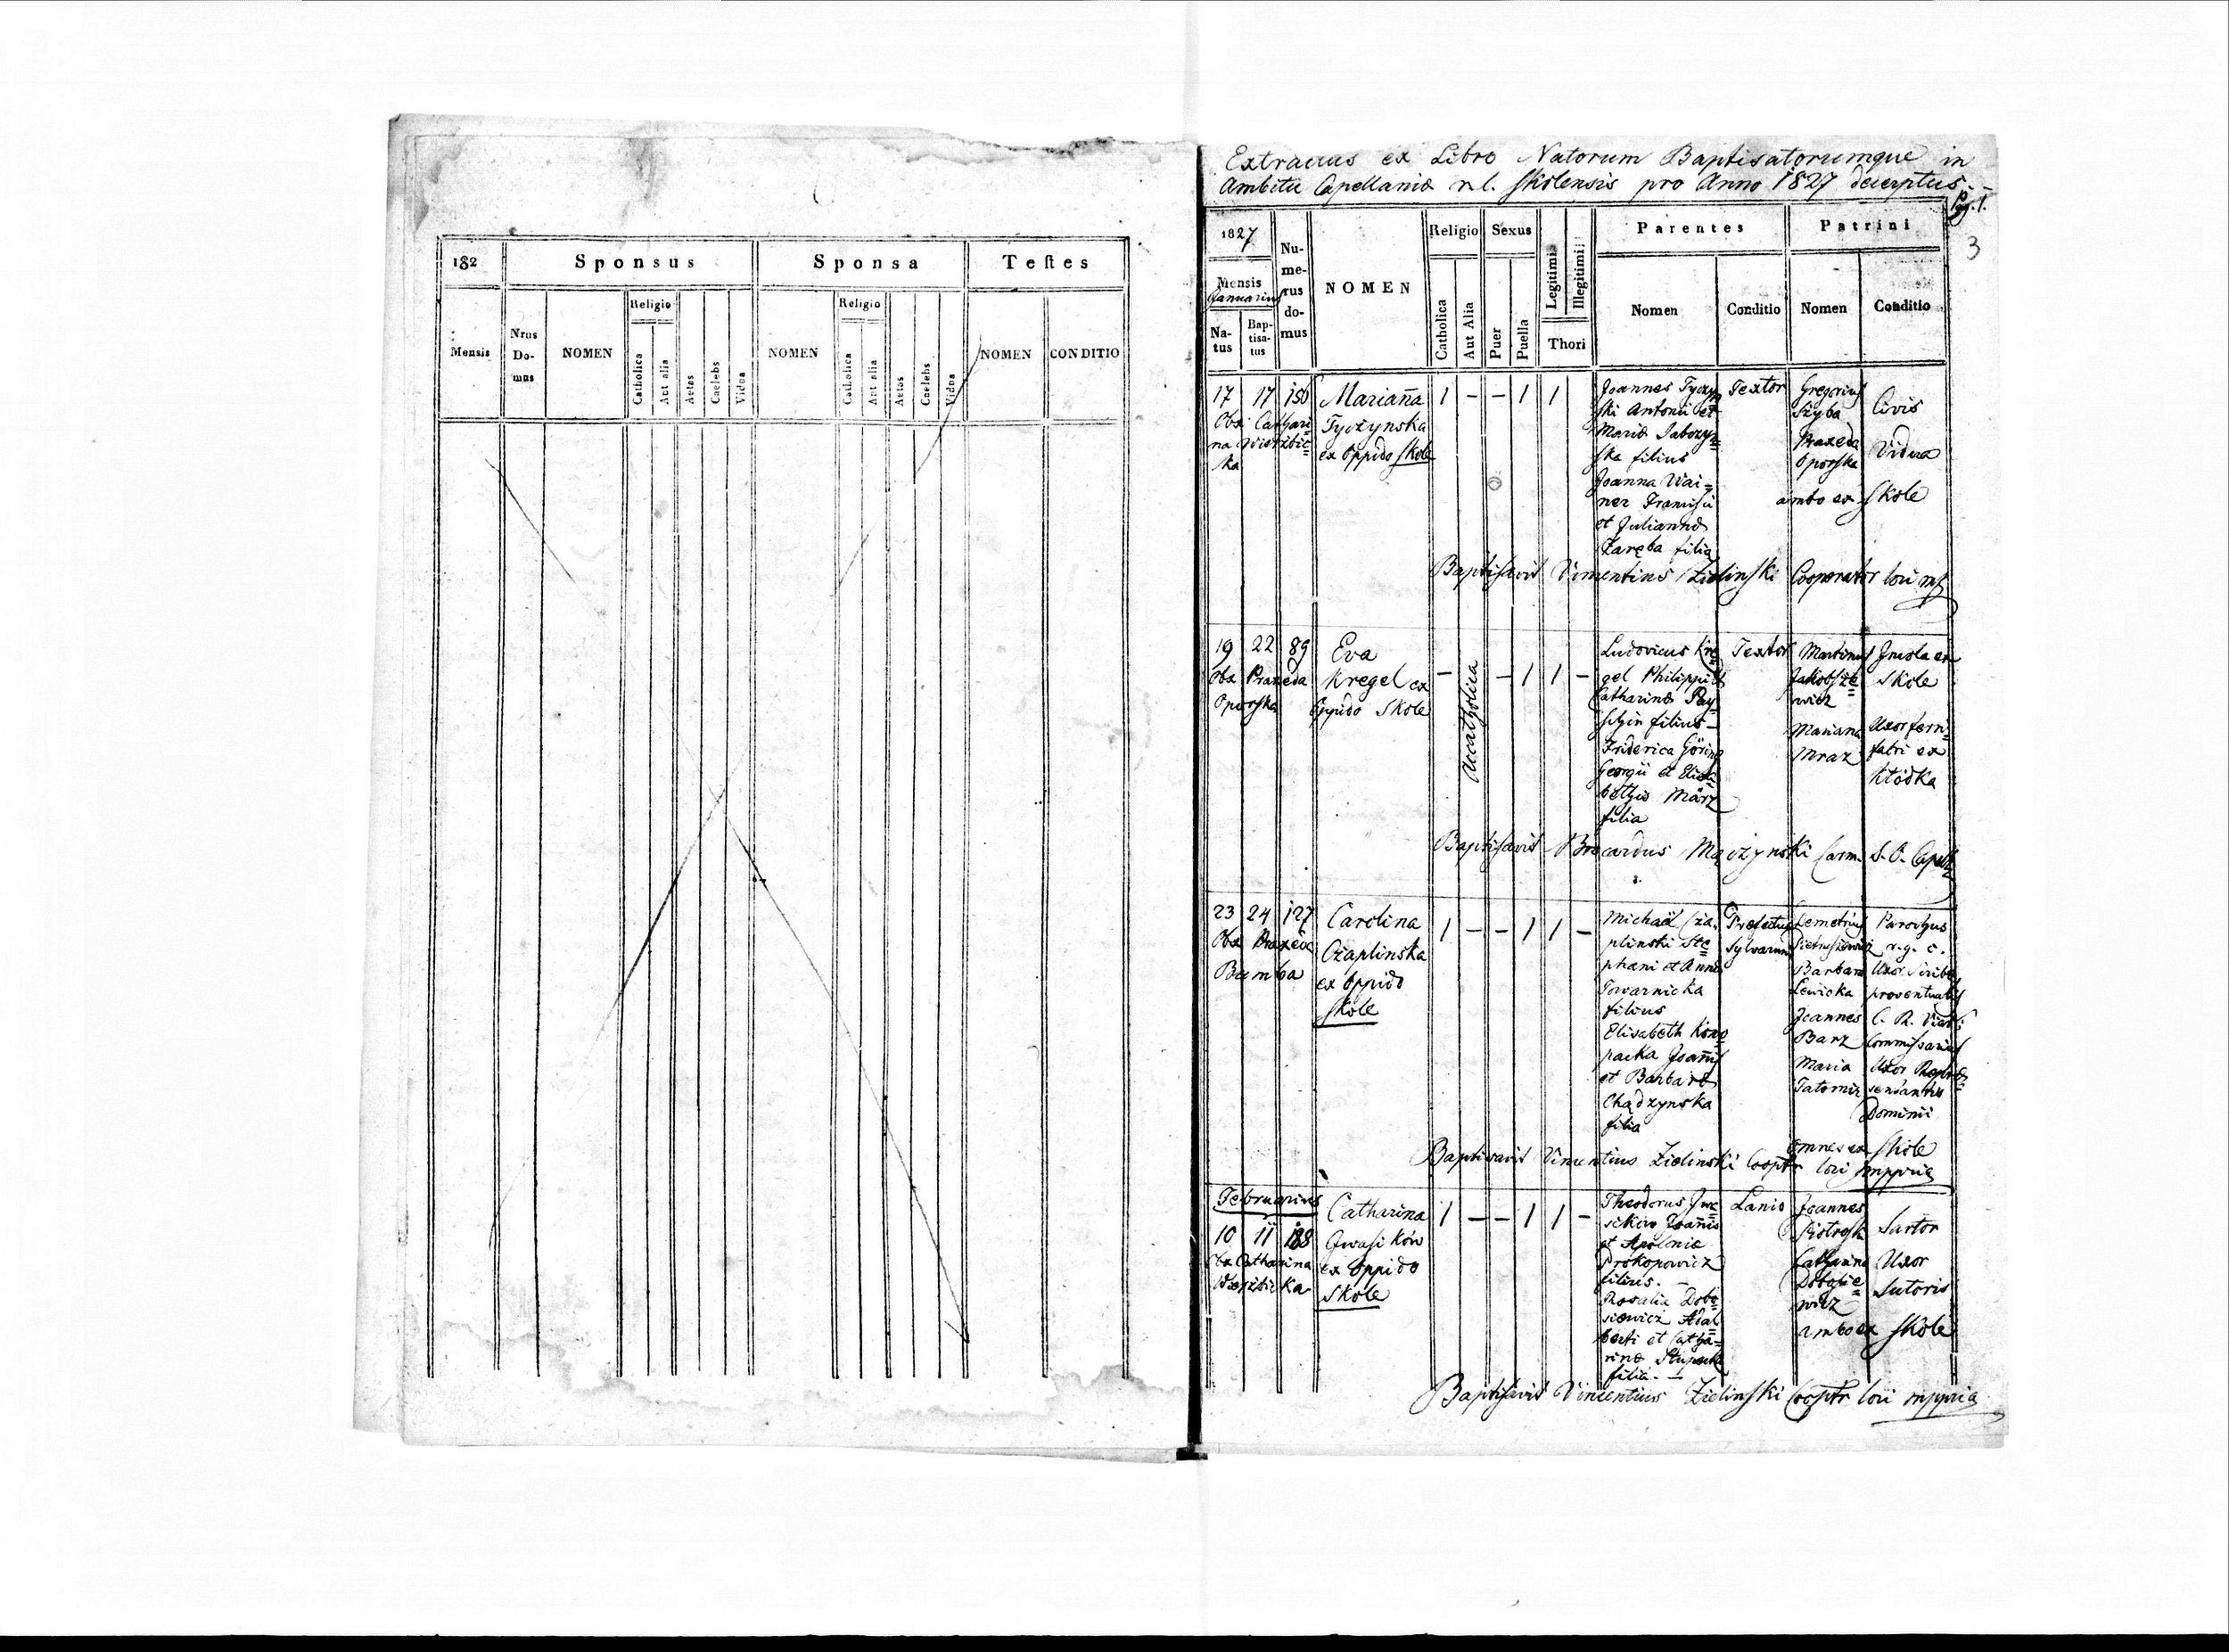 182
Sponsus
Sponsa
Testes
Mensis
Nrus Do- mus
NOMEN
Religio
Catholica
Aut alia
Aetas
Caelebs
Vidua
NOMEN
Religio
Catholica
Aut alia
Aetas
Caelebs
Vidua
NOMEN
CONDITIO
Extractus ex Libro Natorum Baptisatorumque in
Ambitu Capellaniæ r. l. Skolensis pro Anno 1827 decerptus.
Pag. 1.
3
1827
Mensis
Januarius
Na- tus
Bap- tisa- tus
Nu- me- rus do- mus
NOMEN
Religio
Catholica
Aut Alia
Sexus
Puer
Puella
Legitimi
Illegitimi
Thori
Parentes
Nomen
Conditio
Patrini
Nomen
Conditio
17 17 150
Obx Cathari=
na Wierzbic=
ka
Marianna
Tyczynska
ex Oppido Skole
1 - - 1 1
Joannes Tyczyn
ski Antonii et
Mariæ
ska filius
Joanna Wai=
ner Francisci
et Juliannæ
Zaręba filia
Textor
Gregorius
Szyba
Praxeda
Oporska
Civis
Vidua
ambo ex Skole
Baptisavit Vincentius Zielinski Cooperator loci mp
19 22 89
Obx Praxeda
Oporska
Eva
Kregel ex
Oppido Skole
- Acatholica - 1 1 -
Ludovicus Kre
gel Philippi et
Catharinæ
filius
Friderica Göring
Georgii et Elisa
bethæ März
filia
Textor
Martinus
Jakobsze=
wicz
Mariana
Mraz
Incola ex
Skole
Uxor ferri=
fabri ex
Klódka
Baptisavit Brocardus Mączynski Carm.
23 24 127
Obx Praxeda
Bumba
Carolina
Czaplinska
ex Oppido
Skole
1 - - 1 1 -
Michaël Cza
plinski Ste
phani et Annæ
Towarnicka
filius
Elisabeth Kono
packa Joannis
et Barbaræ
Chądzynska
filia
Præfectus
Sylvarum
Demetrius
Pietrusiewicz
Barbara
Lewicka
Joannes
Barz
Maria
Tatomir
Parochus
r. g. c.
Uxor Scribæ
proventualis
C. R.
Commissarius
Uxor Repræ=
sentantis
Dominii
omnes ex Skole
Baptisavit Vincentius Zielinski Cooptr loci mppria
Februarius
10 11 188
Obx Catharina
Wierzbicka
Catharina
Jwasików
ex Oppido
Skole
1 - - 1 1 -
Theodorus Jwa
sików Joannis
et Apoloniæ
Prokopowicz
filius. -
Rosalia Dobo=
siewicz Adal
berti et Catha=
rinæ
filia. -
Lanio
Joannes
Catharina
Dobosie=
wicz
Sartor
Uxor
Sutoris
ambo ex Skole
Baptisavit Vincentius Zielinski Cooptr loci mppria